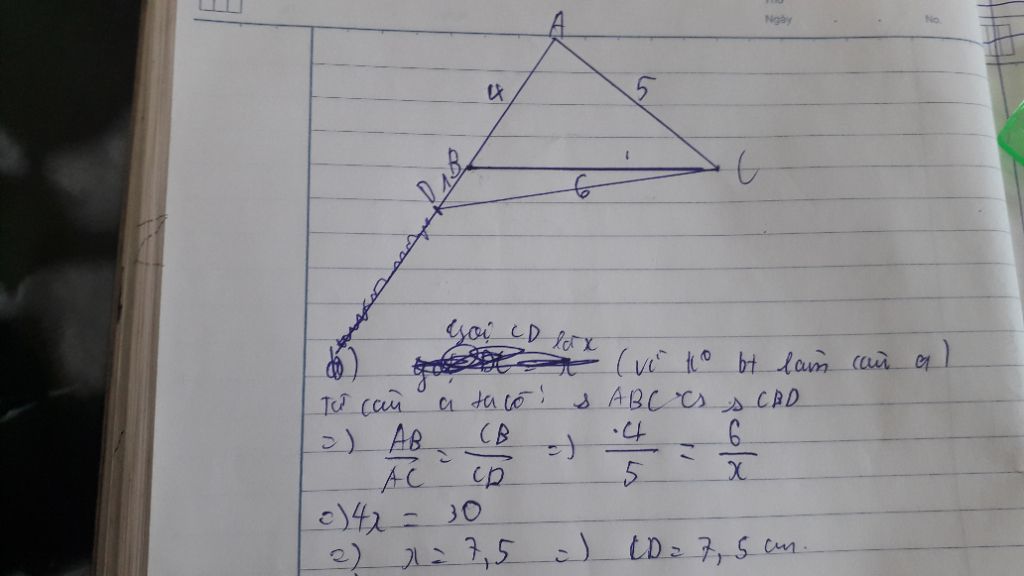 Thứ
Ngày
No.
A
4
5
B
C
D
1
6
Gọi CD là x
b) (vì k° bt làm câu a)
Từ câu a ta có: Δ ABC ∽ Δ CBD
=) AB/AC = CB/CD =) 4/5 = 6/x
=) 4x = 30
=) x = 7,5 =) CD = 7,5 cm.